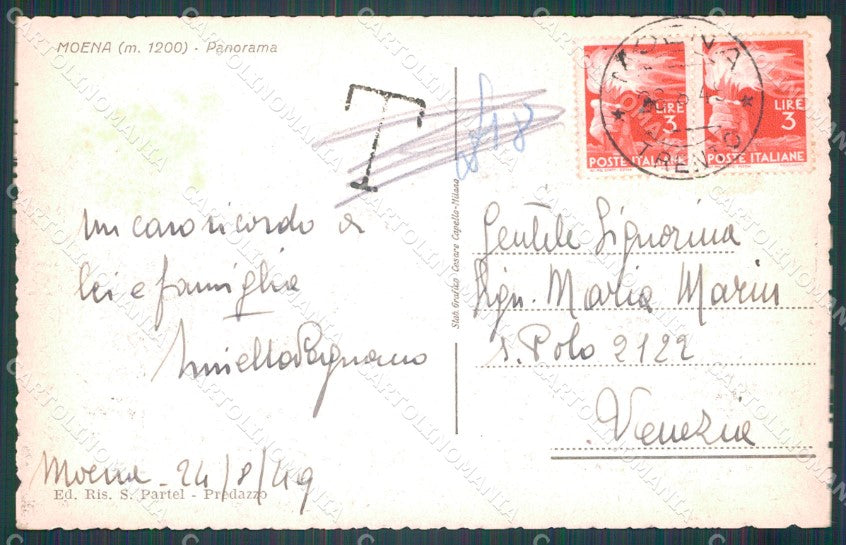 MOENA (m. 1200) - Panorama
T
MOENA
TRENTO
LIRE 3
POSTE ITALIANE
LIRE 3
POSTE ITALIANE
Un caro ricordo a
lei e famiglia
Moena - 24/8/49
Ed. Ris. S. Partel - Predazzo
Stab. Grafico Cesare Capello-Milano
Gentile Signorina
Sign. Maria Marin
S. Polo 2122
Venezia
CARTOLINOMANIA